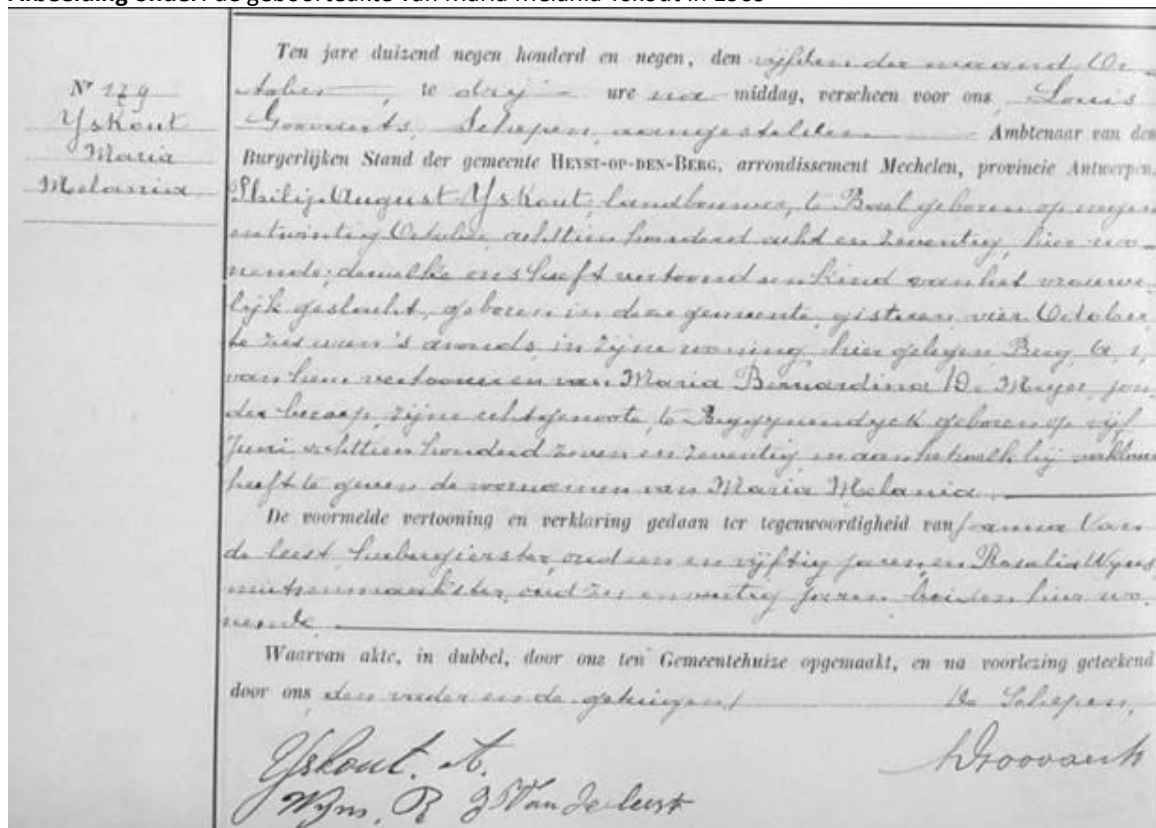 Afbeelding onder: de geboorteakte van Maria Melania Yskout in 1909
Nr 179
Yskout
Maria
Melania
Ten jare duizend negen honderd en negen, den vijfden der maand Oc-
tober, te drij ure na middag, verscheen voor ons Louis
Goovaerts, Schepen, aangestelden Ambtenaar van den
Burgerlijken Stand der gemeente HEYST-OP-DEN-BERG, arrondissement Mechelen, provincie Antwerpen,
Philip August Yskout, landbouwer, te Boal geboren op negen
entwintig October achttien honderd acht en zeventig, hier wo-
nende; dewelke ons heeft vertoond een kind van het vrouwe-
lijk geslacht, geboren in deze gemeente, gisteren vier October,
te zes uren 's avonds, in zijne woning, hier gelegen Berg,
van hem vertooner en van Maria Bernardina De Meyer, zon-
der beroep, zijne echtgenoote, te geboren op vijf
Juni achttien honderd zeven en zeventig en aan hetwelk hij verklaard
heeft te geven de voornamen van Maria Melania.
De voormelde vertooning en verklaring gedaan ter tegenwoordigheid van Joanna Van
de leest, herbergierster, oud een en vijftig jaren, en Rosalia Wyns,
mutsenmaakster, oud jaren, beiden hier wo-
nende.
Waarvan akte, in dubbel, door ons ten Gemeentehuize opgemaakt, en na voorlezing geteekend
door ons, den vader en de getuigen. De Schepen,
Yskout. A. LGoovaerts
Wyns. R J Van de leest